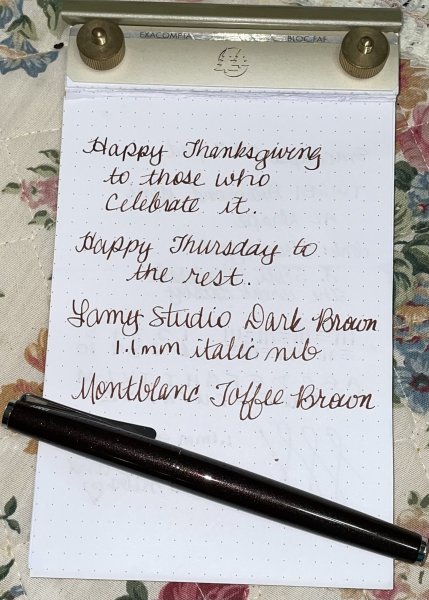 EXACOMPTA BLOC FAF
Happy Thanksgiving
to those who
celebrate it.
Happy Thursday to
the rest.
Lamy Studio Dark Brown
1.1mm italic nib
Montblanc Toffee Brown